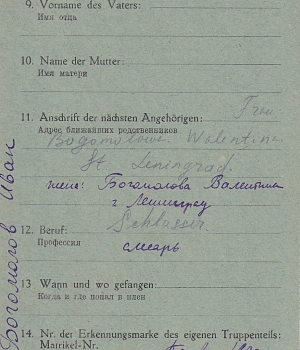 9. Vorname des Vaters:
Имя отца
10. Name der Mutter:
Имя матери
11. Anschrift der nächsten Angehörigen: Frau
Адрес ближайших родственников
Bogomolowa Walentina
St Leningrad.
жена: Богамолова Валентина
г. Ленинград
12. Beruf: Schlosser
Профессия
слесарь
13 Wann und wo gefangen:
Когда и где попал в плен
14. Nr. der Erkennungsmarke des eigenen Truppenteils:
Matrikel-Nr.
Богомолов Иван